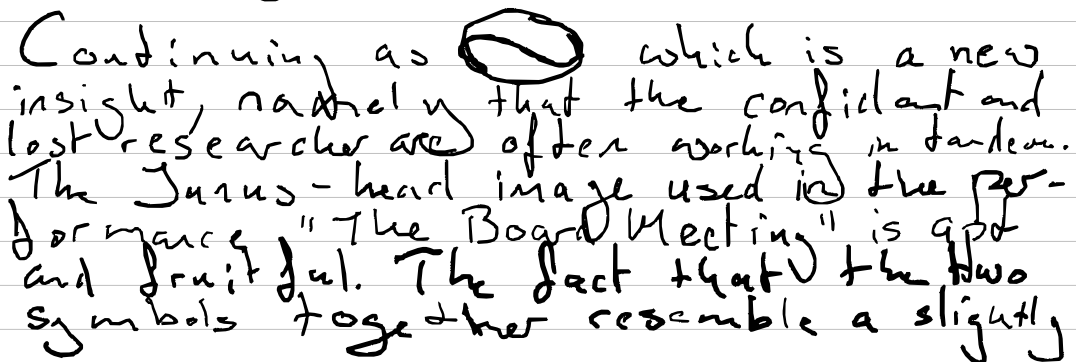 Continuing as which is a new
insight, namely that the confidant and
lost researcher are often working in tandem.
The Janus-head image used in the per-
formance "The Board Meeting" is apt
and fruitful. The fact that the two
symbols together resemble a slightly